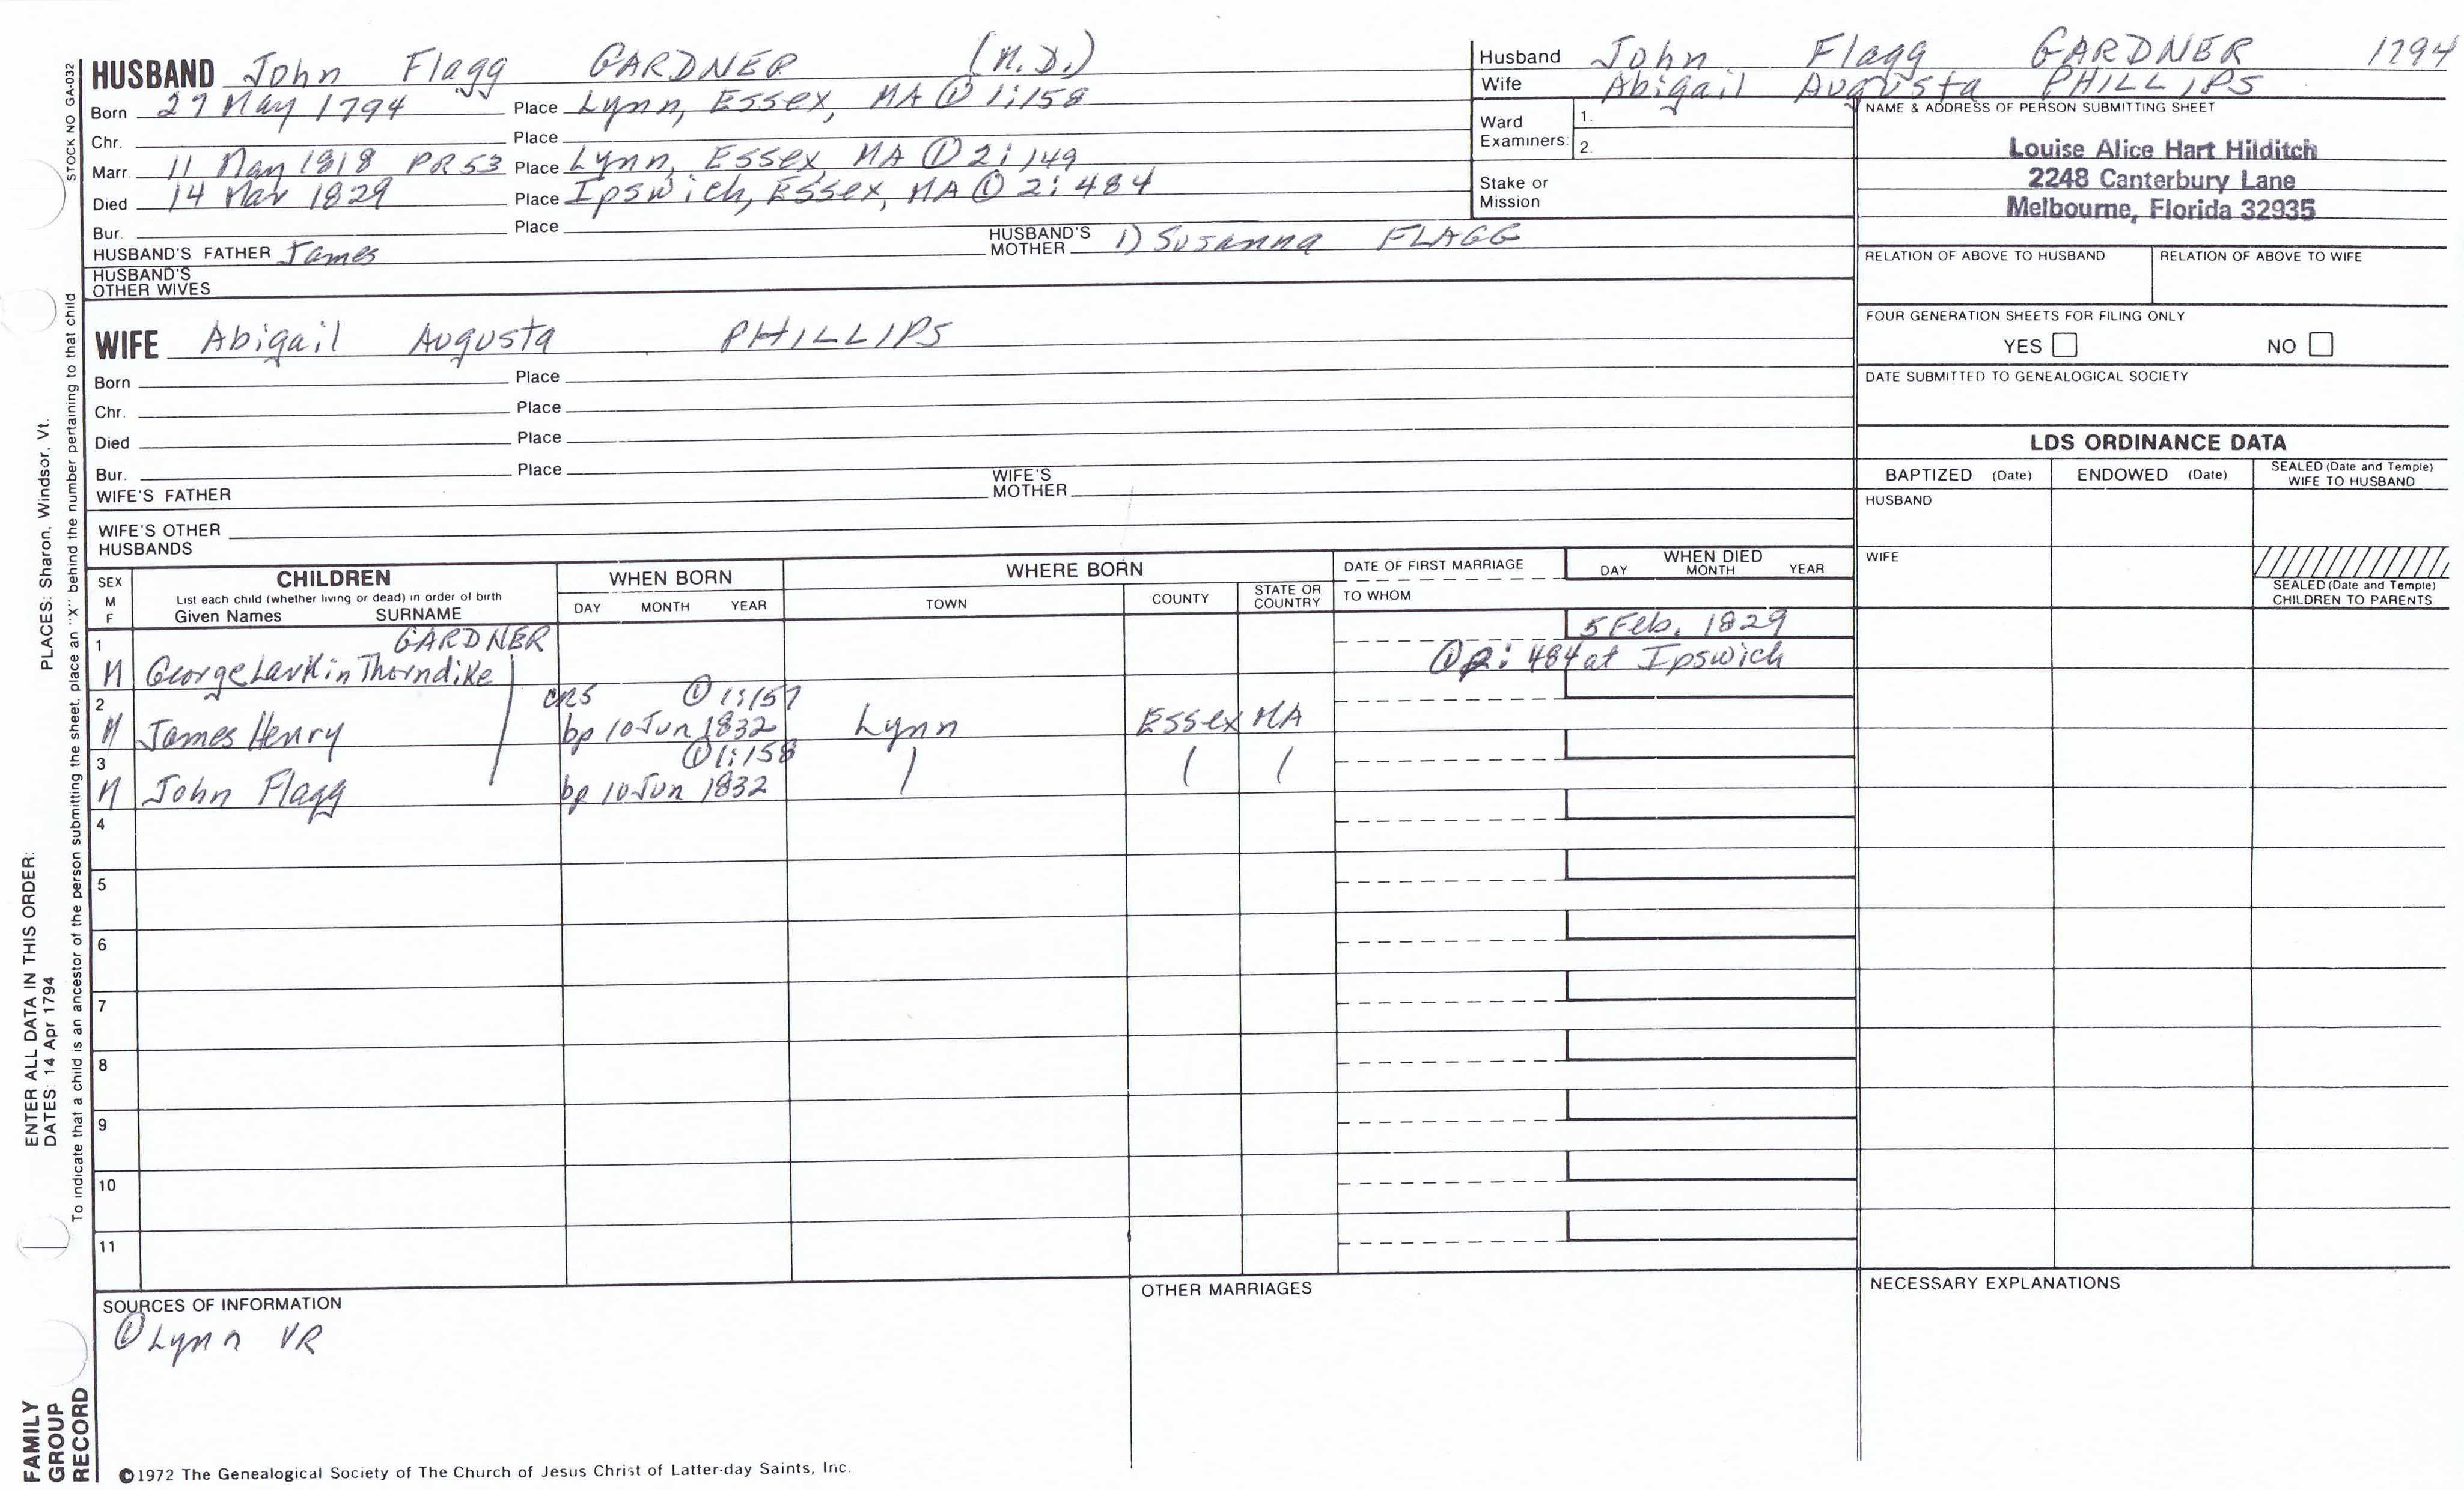 STOCK NO GA-032
HUSBAND John Flagg GARDNER (M.D.)
Born 27 May 1794 Place Lynn, Essex, MA ① 1:158
Chr. Place
Marr. 11 May 1818 PR53 Place Lynn, Essex, MA ① 2:149
Died 14 Mar 1829 Place Ipswich, Essex, MA ① 2:484
Bur. Place
HUSBAND'S FATHER James HUSBAND'S MOTHER 1) Susanna FLAGG
HUSBAND'S OTHER WIVES
WIFE Abigail Augusta PHILLIPS
Born Place
Chr. Place
Died Place
Bur. Place
WIFE'S FATHER WIFE'S MOTHER
WIFE'S OTHER HUSBANDS
Husband John Flagg GARDNER 1794
Wife Abigail Augusta PHILLIPS
Ward Examiners: 1.
2.
Stake or Mission
NAME & ADDRESS OF PERSON SUBMITTING SHEET
Louise Alice Hart Hilditch
2248 Canterbury Lane
Melbourne, Florida 32935
RELATION OF ABOVE TO HUSBAND RELATION OF ABOVE TO WIFE
FOUR GENERATION SHEETS FOR FILING ONLY
YES NO
DATE SUBMITTED TO GENEALOGICAL SOCIETY
LDS ORDINANCE DATA
BAPTIZED (Date) ENDOWED (Date) SEALED (Date and Temple) WIFE TO HUSBAND
HUSBAND
WIFE
SEALED (Date and Temple) CHILDREN TO PARENTS
SEX M F
CHILDREN
List each child (whether living or dead) in order of birth
Given Names SURNAME
WHEN BORN
DAY MONTH YEAR
WHERE BORN
TOWN COUNTY STATE OR COUNTRY
DATE OF FIRST MARRIAGE
TO WHOM
WHEN DIED
DAY MONTH YEAR
1 GARDNER 5 Feb. 1829
M George Larkin Thorndike ① 2:484 at Ipswich
2 CR5 ① 1:157
M James Henry bp 10 Jun 1832 Lynn Essex MA
3 ① 1:158
M John Flagg bp 10 Jun 1832
4
5
6
7
8
9
10
11
SOURCES OF INFORMATION
① Lynn VR
OTHER MARRIAGES
NECESSARY EXPLANATIONS
©1972 The Genealogical Society of The Church of Jesus Christ of Latter-day Saints, Inc.
FAMILY GROUP RECORD
ENTER ALL DATA IN THIS ORDER:
DATES: 14 Apr 1794
PLACES: Sharon, Windsor, Vt.
To indicate that a child is an ancestor of the person submitting the sheet, place an "X" behind the number pertaining to that child